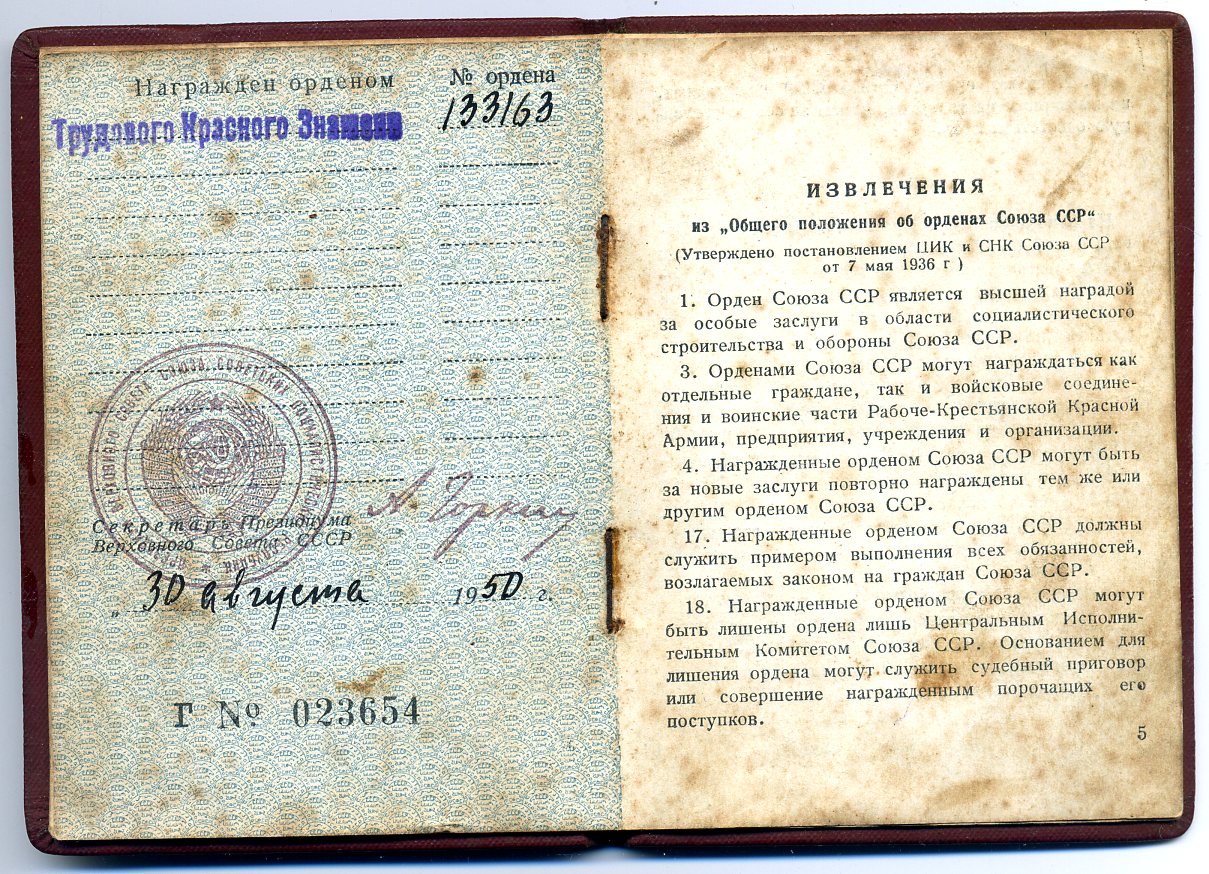 Награжден орденом
№ ордена
Трудового Красного Знамени
133163
СОВЕТА СОЮЗА СОВЕТСКИХ СОЦИАЛИСТИЧЕСКИХ
Секретарь Президиума
Верховного Совета СССР
А. Горкин
„ 30 августа 1950 г.
Г № 023654
ИЗВЛЕЧЕНИЯ
из „Общего положения об орденах Союза ССР“
(Утверждено постановлением ЦИК и СНК Союза ССР
от 7 мая 1936 г )
1. Орден Союза ССР является высшей наградой
за особые заслуги в области социалистического
строительства и обороны Союза ССР.
3. Орденами Союза ССР могут награждаться как
отдельные граждане, так и войсковые соедине-
ния и воинские части Рабоче-Крестьянской Красной
Армии, предприятия, учреждения и организации.
4. Награжденные орденом Союза ССР могут быть
за новые заслуги повторно награждены тем же или
другим орденом Союза ССР.
17. Награжденные орденом Союза ССР должны
служить примером выполнения всех обязанностей,
возлагаемых законом на граждан Союза ССР.
18. Награжденные орденом Союза ССР могут
быть лишены ордена лишь Центральным Исполни-
тельным Комитетом Союза ССР. Основанием для
лишения ордена могут служить судебный приговор
или совершение награжденным порочащих его
поступков.
5